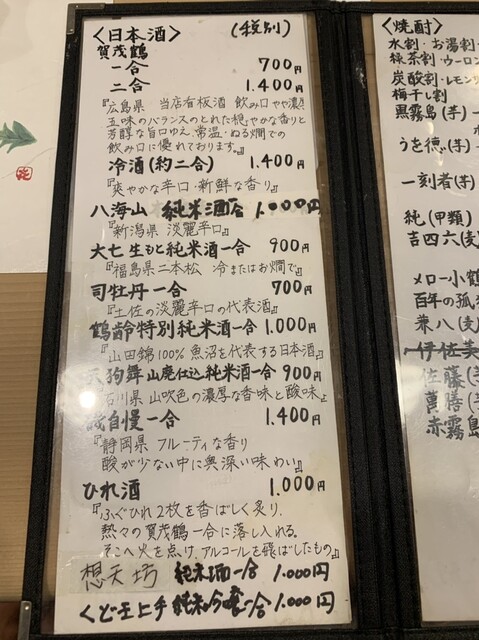 <日本酒> (税別)
賀茂鶴
一合 700円
二合 1.400円
『広島県 当店看板酒 飲み口やや濃い
五味のバランスのとれた穏やかな香りと
芳醇な旨口ゆえ、常温・ぬる燗での
飲み口に優れております。』
冷酒(約二合) 1.400円
『爽やかな辛口・新鮮な香り』
八海山 純米酒一合 1.000円
『新潟県 淡麗辛口』
大七 生もと純米酒一合 900円
『福島県二本松 冷またはお燗で』
司牡丹一合 700円
『土佐の淡麗辛口の代表酒』
鶴齢特別純米酒一合 1.000円
『山田錦100% 魚沼を代表する日本酒』
天狗舞 山廃仕込純米酒一合 900円
石川県 山吹色の濃厚な香味と酸味』
我自慢一合 1.400円
『静岡県 フルーティな香り
酸が少ない中に奥深い味わい』
ひれ酒 1.000円
『ふぐひれ2枚を香ばしく炙り、
熱々の賀茂鶴一合に落し入れる。
そこへ火を点け、アルコールを飛ばしたもの』
想天坊 純米酒一合 1.000円
くどき上手 純米吟醸一合 1.000円
<焼酎>
水割・お湯割・
緑茶割・ウーロン
炭酸割・レモンサ
梅干し割
黒霧島(芋)一
うを徳(芋)一
一刻者(芋)
純(甲類)
吉四六(麦)
メロー小鶴
百年の孤
兼八(麦)
伊佐美
佐藤(芋
萬膳(芋
赤霧島